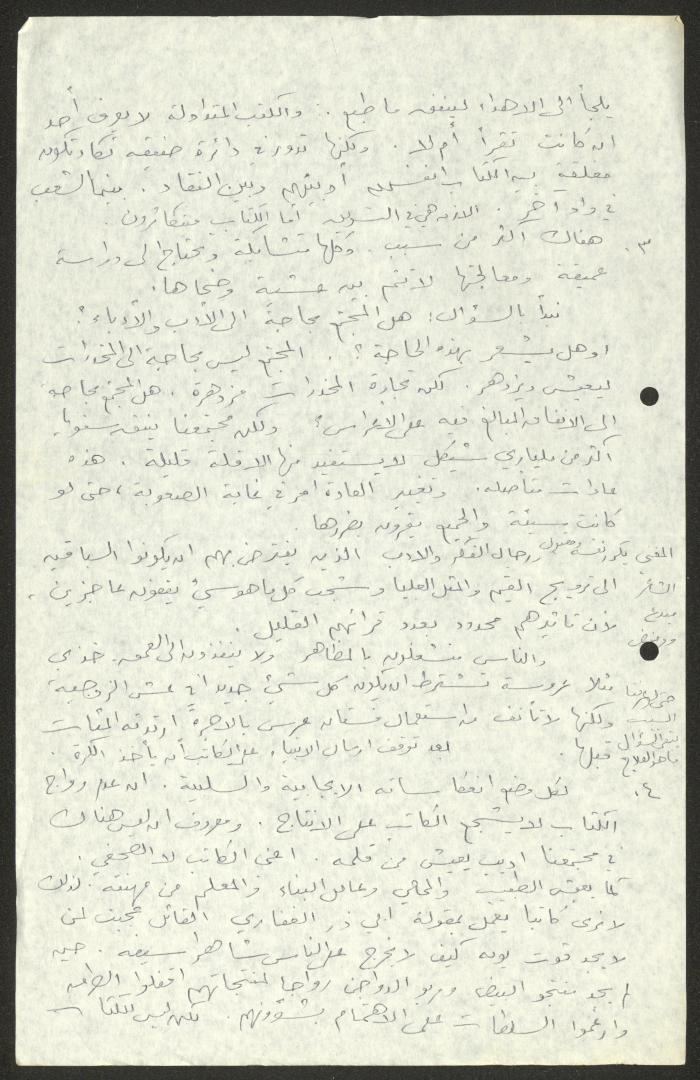 يلجأ الى الاهداء لينفق ما طبع . والكتب المتداولة لا يعرف أحد
ان كانت تقرأ أم لا . ولكنها تدور في دائرة ضيقة تكاد تكون
مغلقة بين الكتاب انفسهم أو بينهم وبين النقاد . بينما الشعب
في واد آخر . الازمة هي في التسويق أما الكتاب فيتكاثرون .
٣. هناك اكثر من سبب . وكلها متشابكة وتحتاج الى دراسة
عميقة ومعالجتها لا تتم بين عشية وضحاها .
نبدأ بالسؤال : هل المجتمع بحاجة الى الأدب والأدباء ؟
او هل يشعر بهذه الحاجة ؟ . المجتمع ليس بحاجة الى المخدرات
ليعيش ويزدهر . لكن تجارة المخدرات مزدهرة . هل المجتمع بحاجة
الى الانفاق المبالغ فيه على الاعراس ؟ ولكن مجتمعنا ينفق سنويا
أكثر من ملياري شيكل لا يستفيد منها الا قلة قليلة . هذه
عادات متأصلة . وتغيير العادة امر في غاية الصعوبة ، حتى لو
كانت سيئة والجميع يقرون بضررها .
المغني يكرر نفسه
ورجال الفكر والادب الذين يفترض بهم ان يكونوا السباقين
الشاعر
الى ترويج القيم والمثل العليا وشجب كل ما هو سيئ يقفون عاجزين ،
مبدع
لأن تأثيرهم محدود بعدد قرائهم القليل .
والناس منشغلون بالمظاهر ولا ينفذون الى العمق . خذي
مثلا عروسة تشترط ان يكون كل شيئ جديد في عش الزوجية
ولكنها لا تأنف من استعمال فستان عرس بالاجرة ارتدته المئات
السبب
قبلها . بعد توقف ارسال الانبياء على الكاتب أن يأخذ الكرة .
يبقى السؤال
ما هو العلاج
٤. لكل وضع انعكاساته الايجابية والسلبية . ان عدم رواج
الكتاب لا يشجع الكاتب على الانتاج . ومعروف ان ليس هناك
في مجتمعنا اديب يعيش من قلمه . اعني الكاتب لا الصحفي .
كما يعيش الطبيب والمحامي وعامل البناء والمعلم من مهنته . لذلك
لا نرى كاتبا يعمل بمقولة ابي ذر الغفاري القائل عجبت لمن
لا يجد قوت يومه كيف لا يخرج على الناس شاهرا سيفه . حين
لم يجد منتجو البيض ومربو الدواجن رواجا لمنتجاتهم اقفلوا الطرق
وارغموا السلطات على الاهتمام بشؤونهم . لكن ليس للكتاب